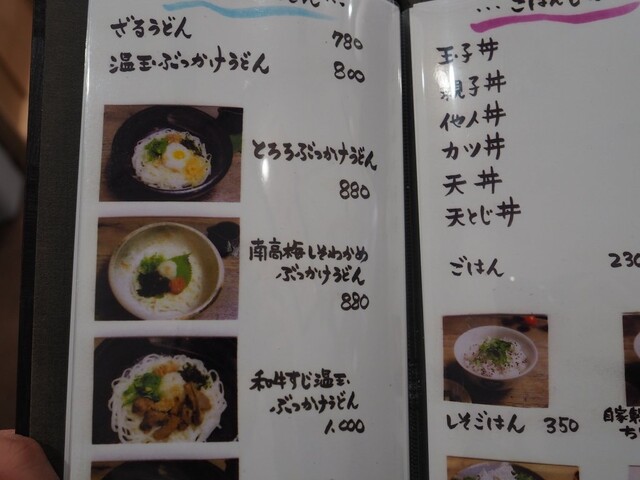 ざるうどん 780
温玉ぶっかけうどん 800
とろろぶっかけうどん
880
南高梅しそわかめ
ぶっかけうどん
880
和牛すじ温玉
ぶっかけうどん
1,000
玉子丼
親子丼
他人丼
カツ丼
天丼
天とじ丼
ごはん 230
しそごはん 350
自家製